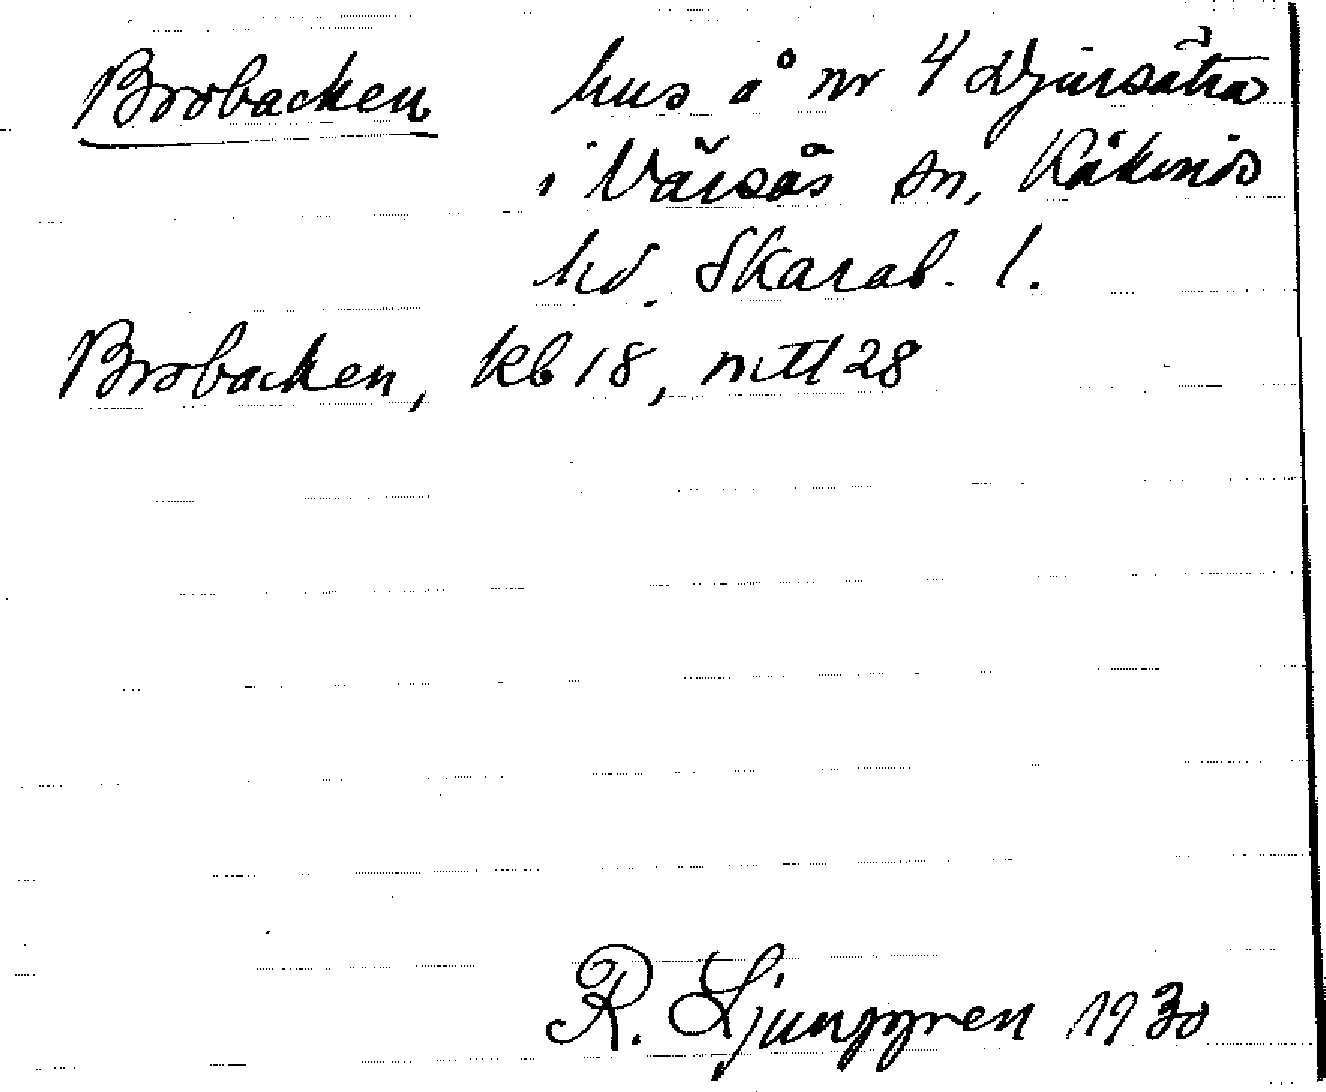 Brobacken hus å nr 4 Djursätra
i Värsås sn, Kåkinds
hd. Skarab. l.
Brobacken, kb 18, mtl 28
R. Ljunggren 1930